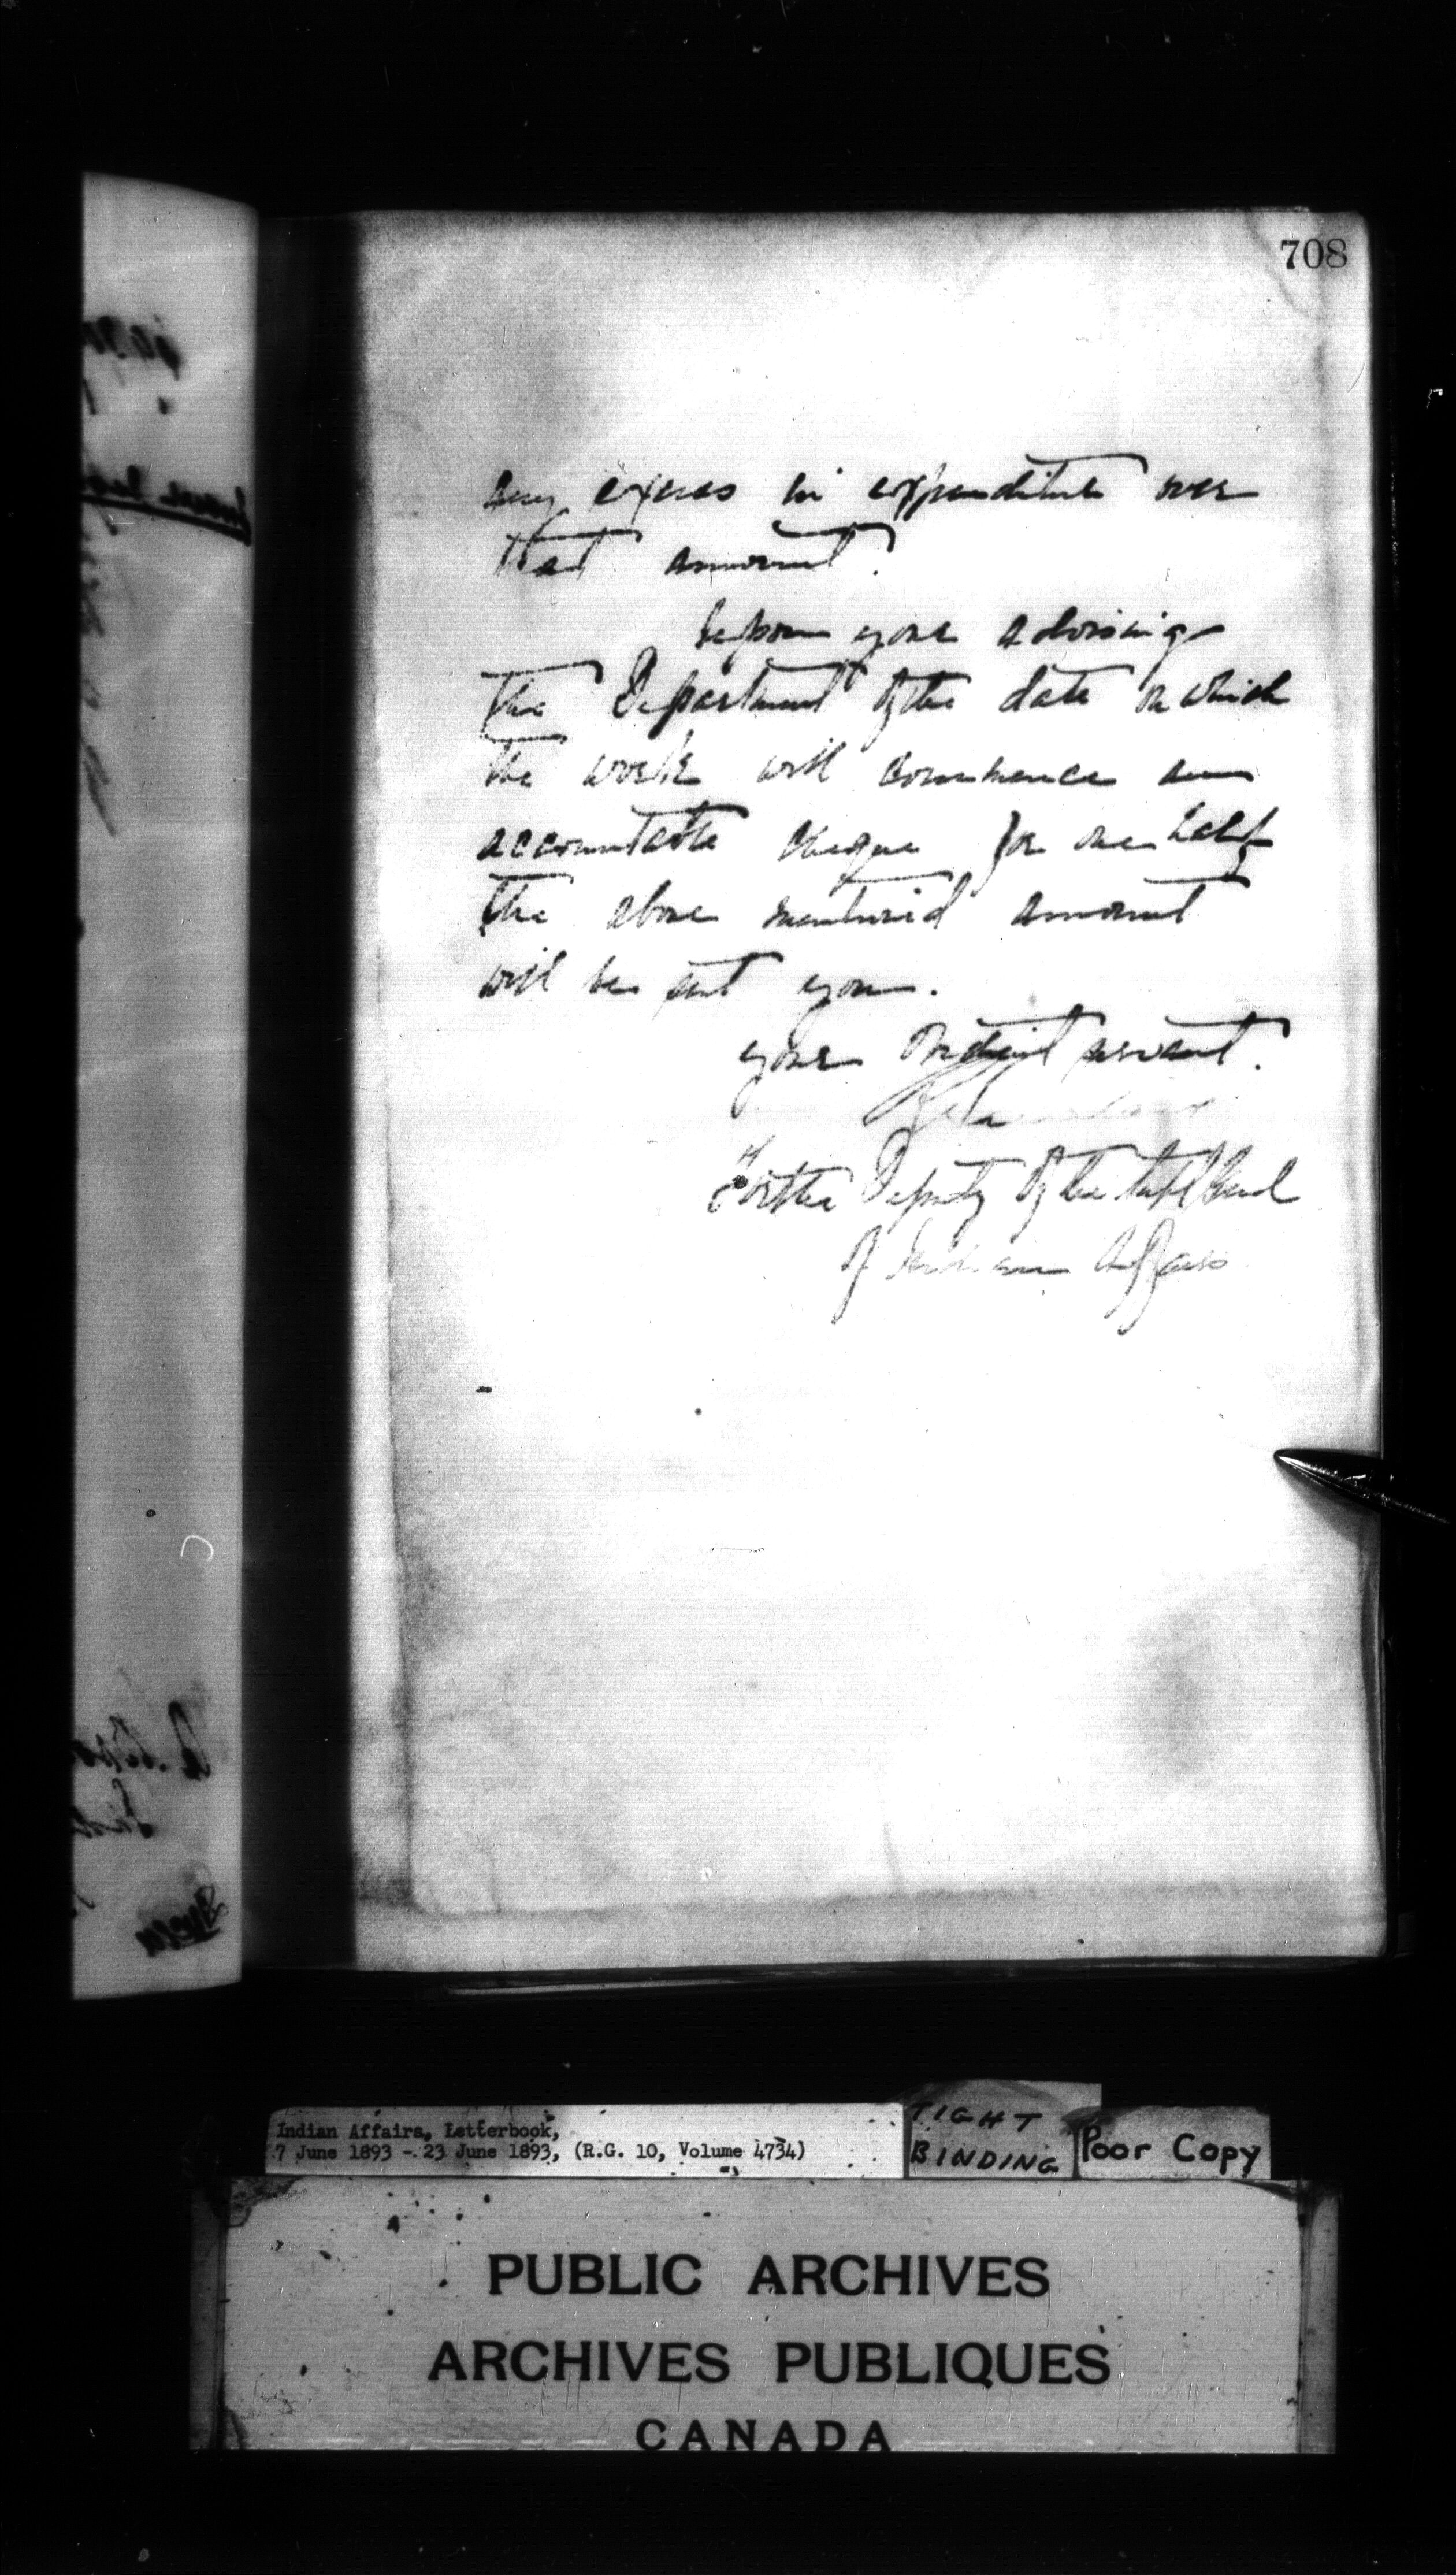 708
any excess in expenditure over
that amount.
Upon your advising
the Department of the date on which
the work will commence an
accountable cheque for one half
the above mentioned amount
will be sent you.
your obedient servant.
For the Deputy of the Supt Genl
of Indian Affairs
Indian Affairs, Letterbook,
7 June 1893 - 23 June 1893, (R.G. 10, Volume 4734)
TIGHT
BINDING
Poor Copy
PUBLIC ARCHIVES
ARCHIVES PUBLIQUES
CANADA